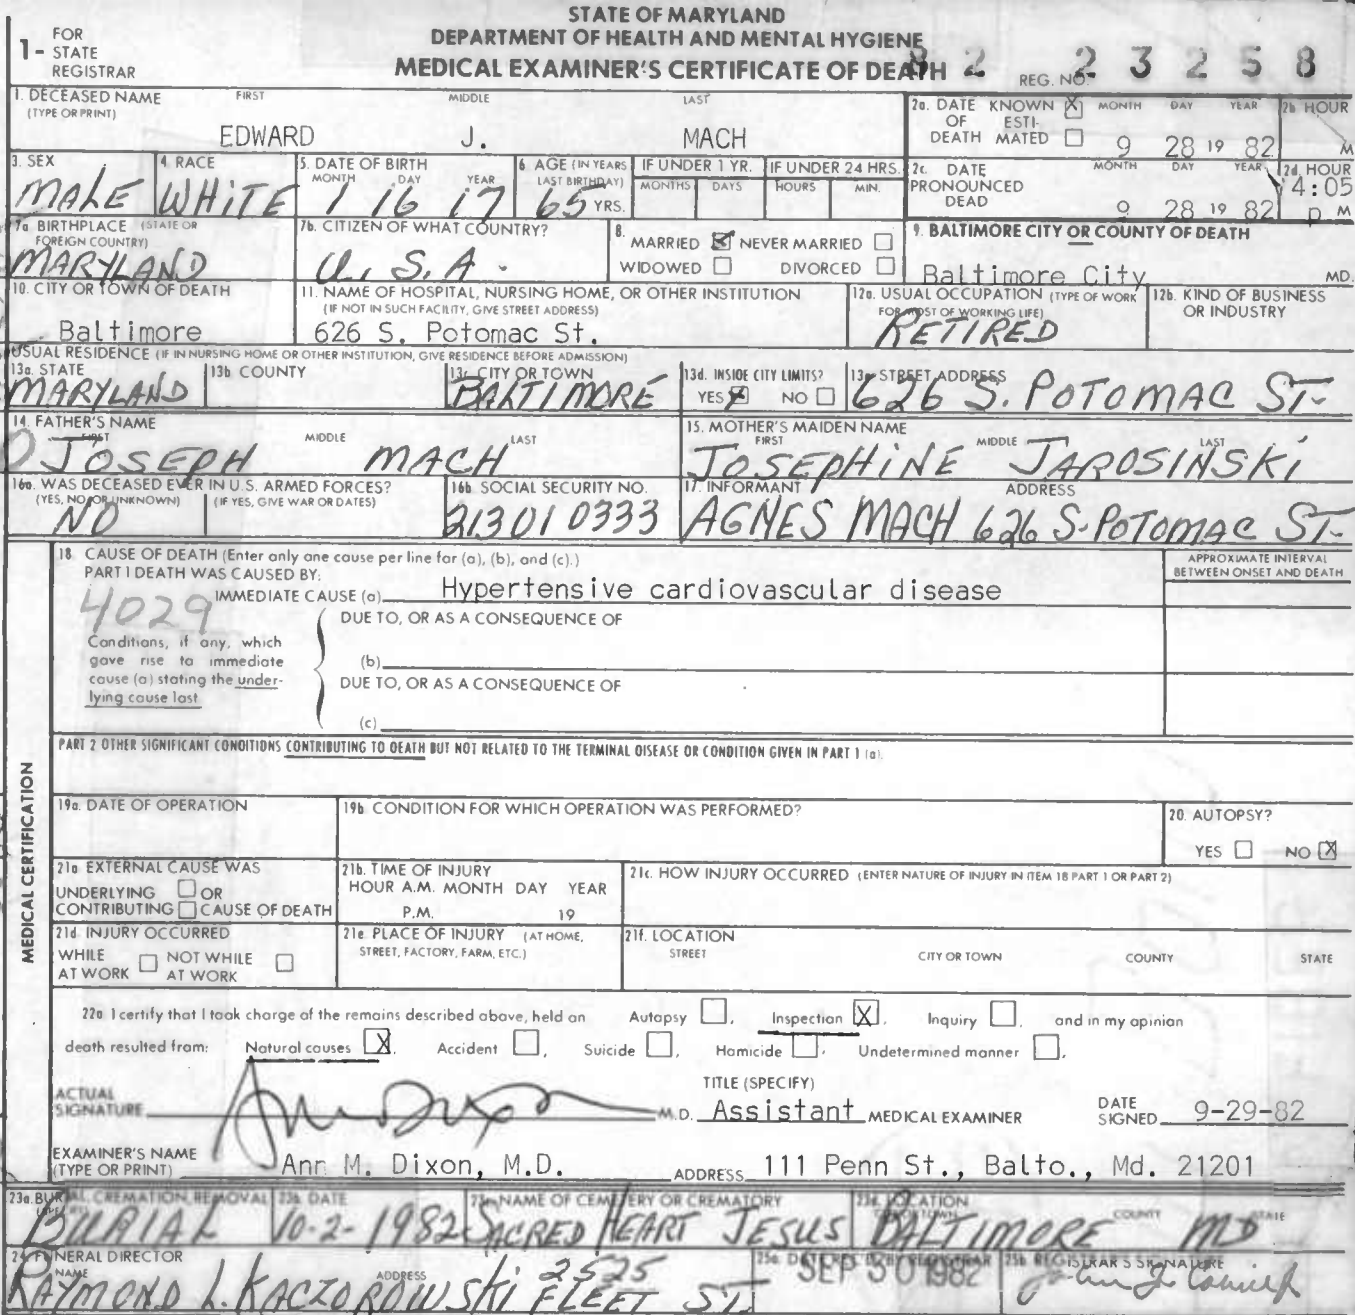 STATE OF MARYLAND
DEPARTMENT OF HEALTH AND MENTAL HYGIENE
MEDICAL EXAMINER'S CERTIFICATE OF DEATH
1- FOR STATE REGISTRAR
REG. NO. 82 23258
1. DECEASED NAME (TYPE OR PRINT) FIRST MIDDLE LAST
EDWARD J. MACH
2a. DATE OF DEATH KNOWN [X] ESTIMATED [ ] MONTH DAY YEAR 2b HOUR
9 28 19 82 M
3. SEX 4. RACE 5. DATE OF BIRTH MONTH DAY YEAR 6. AGE (IN YEARS LAST BIRTHDAY) IF UNDER 1 YR. MONTHS DAYS IF UNDER 24 HRS. HOURS MIN.
MALE WHITE 1 16 17 65 YRS.
2c. DATE PRONOUNCED DEAD MONTH DAY YEAR 2d. HOUR
9 28 19 82 4:05 p M
7a BIRTHPLACE (STATE OR FOREIGN COUNTRY) 7b. CITIZEN OF WHAT COUNTRY?
MARYLAND U.S.A.
8. MARRIED [X] NEVER MARRIED [ ]
WIDOWED [ ] DIVORCED [ ]
9. BALTIMORE CITY OR COUNTY OF DEATH
Baltimore City MD.
10. CITY OR TOWN OF DEATH 11. NAME OF HOSPITAL, NURSING HOME, OR OTHER INSTITUTION
(IF NOT IN SUCH FACILITY, GIVE STREET ADDRESS)
Baltimore 626 S. Potomac St.
12a. USUAL OCCUPATION (TYPE OF WORK FOR MOST OF WORKING LIFE) 12b. KIND OF BUSINESS OR INDUSTRY
RETIRED
USUAL RESIDENCE (IF IN NURSING HOME OR OTHER INSTITUTION, GIVE RESIDENCE BEFORE ADMISSION)
13a. STATE 13b COUNTY 13c. CITY OR TOWN 13d. INSIDE CITY LIMITS? 13e. STREET ADDRESS
MARYLAND BALTIMORE YES [X] NO [ ] 626 S. POTOMAC ST.
14. FATHER'S NAME FIRST MIDDLE LAST 15. MOTHER'S MAIDEN NAME FIRST MIDDLE LAST
JOSEPH MACH JOSEPHINE JAROSINSKI
16a. WAS DECEASED EVER IN U.S. ARMED FORCES? 16b SOCIAL SECURITY NO. 17. INFORMANT ADDRESS
(YES, NO, OR UNKNOWN) (IF YES, GIVE WAR OR DATES)
NO 213010333 AGNES MACH 626 S. POTOMAC ST.
MEDICAL CERTIFICATION
18. CAUSE OF DEATH (Enter only one cause per line for (a), (b), and (c).)
APPROXIMATE INTERVAL BETWEEN ONSET AND DEATH
PART I DEATH WAS CAUSED BY:
IMMEDIATE CAUSE (a) Hypertensive cardiovascular disease
4029
DUE TO, OR AS A CONSEQUENCE OF
Conditions, if any, which gave rise to immediate cause (a) stating the underlying cause last
(b)
DUE TO, OR AS A CONSEQUENCE OF
(c)
PART 2 OTHER SIGNIFICANT CONDITIONS CONTRIBUTING TO DEATH BUT NOT RELATED TO THE TERMINAL DISEASE OR CONDITION GIVEN IN PART 1 (a).
19a. DATE OF OPERATION 19b CONDITION FOR WHICH OPERATION WAS PERFORMED? 20. AUTOPSY?
YES [ ] NO [X]
21a EXTERNAL CAUSE WAS
UNDERLYING [ ] OR
CONTRIBUTING [ ] CAUSE OF DEATH
21b. TIME OF INJURY
HOUR A.M. MONTH DAY YEAR
P.M. 19
21c. HOW INJURY OCCURRED (ENTER NATURE OF INJURY IN ITEM 18 PART 1 OR PART 2)
21d. INJURY OCCURRED
WHILE AT WORK [ ] NOT WHILE AT WORK [ ]
21e. PLACE OF INJURY (AT HOME, STREET, FACTORY, FARM, ETC.)
21f. LOCATION
STREET CITY OR TOWN COUNTY STATE
22a I certify that I took charge of the remains described above, held an Autopsy [ ], Inspection [X], Inquiry [ ], and in my opinion
death resulted from: Natural causes [X], Accident [ ], Suicide [ ], Homicide [ ], Undetermined manner [ ],
ACTUAL SIGNATURE Ann Dixon M.D.
TITLE (SPECIFY) Assistant MEDICAL EXAMINER
DATE SIGNED 9-29-82
EXAMINER'S NAME (TYPE OR PRINT) Ann M. Dixon, M.D. ADDRESS 111 Penn St., Balto., Md. 21201
23a. BURIAL, CREMATION, REMOVAL 23b DATE 23c. NAME OF CEMETERY OR CREMATORY 23d. LOCATION CITY OR TOWN COUNTY STATE
BURIAL 10-2-1982 SACRED HEART JESUS BALTIMORE MD
24. FUNERAL DIRECTOR NAME ADDRESS
RAYMOND L. KACZOROWSKI 2525 FLEET ST.
25a DATE REC'D BY REGISTRAR 25b REGISTRAR'S SIGNATURE
SEP 30 1982